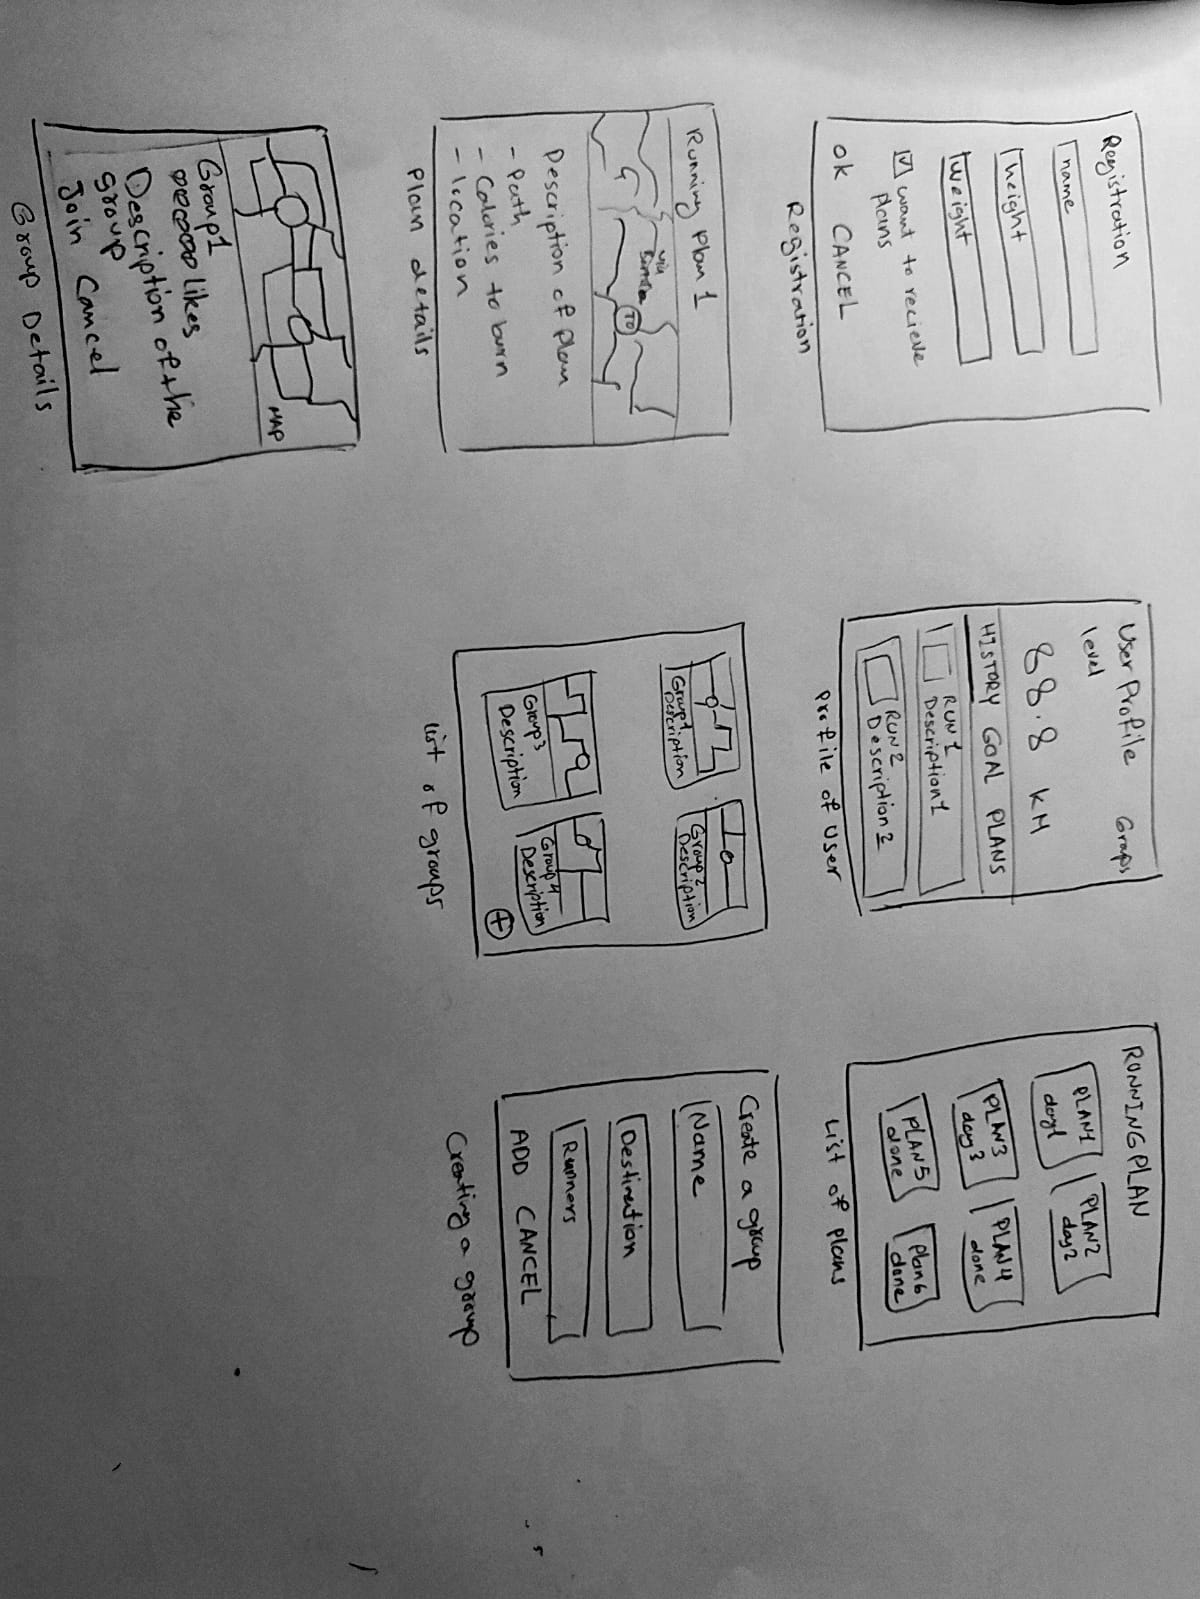 Registration
name
height
weight
want to recieve
plans
ok CANCEL
Registration
User Profile Graphs
level
88.8 KM
HISTORY GOAL PLANS
RUN 1
Description 1
RUN 2
Description 2
Profile of User
RUNNING PLAN
PLAN1
day1
PLAN2
day2
PLAN3
day3
PLAN4
done
PLAN5
done
Plan6
done
List of Plans
Running Plan 1
via
TO
Description of Plan
- Path
- Calories to burn
- location
Plan details
Group1
Description
Group2
Description
Group3
Description
Group4
Description
+
list of groups
Create a group
Name
Destination
Runners
ADD CANCEL
Creating a group
MAP
Group1
likes
Description of the
group
Join Cancel
Group Details